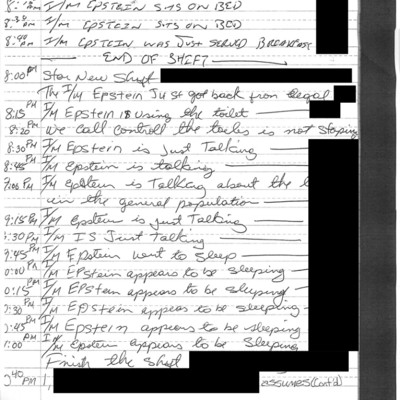 I/M EPSTEIN SITS ON BED
I/M EPSTEIN SITS ON BED
8:40 I/M EPSTEIN WAS JUST SERVED BREAKFAST
END OF SHIFT
8:00 PM Star New Shift
The I/M Epstein Just got back from legal
8:15 PM I/M Epstein is using the toilet
8:20 PM We call controll the toilet is not stoping
8:30 PM I/M Epstein is Just Talking
8:45 PM I/M Epstein is talking
9:00 PM I/M Epstein is Talking about the
in the general population
9:15 PM I/M Epstein is just Talking
:30 PM I/M IS Just talking
9:45 PM I/M Epstein went to sleep
0:00 PM I/M EPStein appears to be sleeping
0:15 PM I/M EPStein appears to be sleeping
:30 PM I/M EPStein appears to be sleeping
:45 PM I/M Epstein appears to be sleeping
:00 PM I/M Epstein appears to be sleeping
Finish the shift
:40 PM I, assumes (Cont'd)